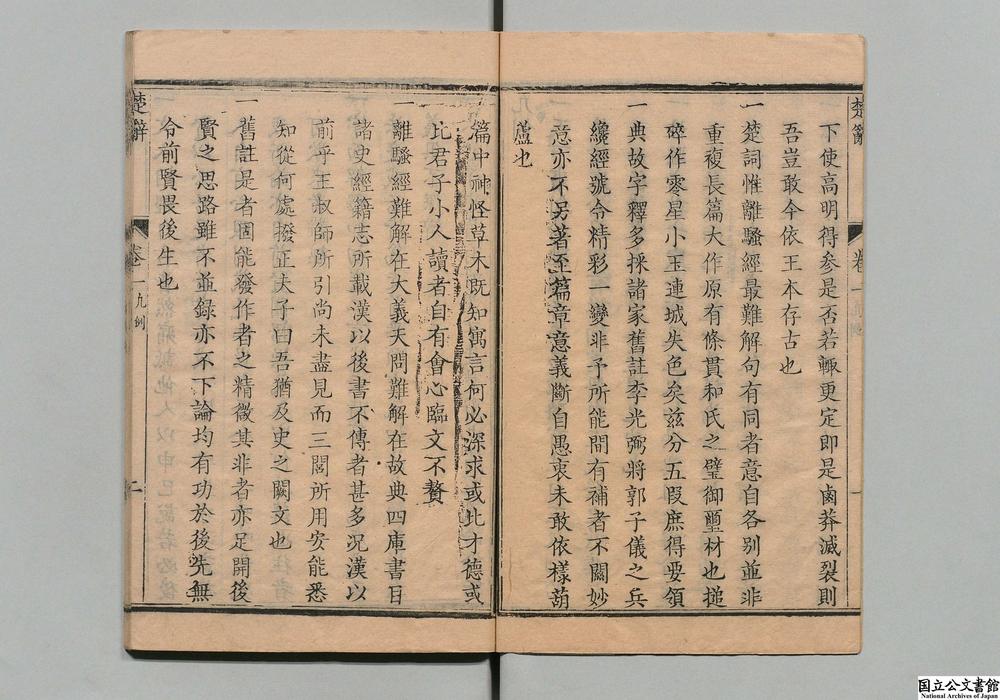 下使高明得參是否若輙更定即是鹵莽滅裂則
吾豈敢今依王本存古也
一楚詞惟離騷經最難解句有同者意自各别並非
重複長篇大作原有條貫和氏之璧御璽材也搥
碎作零星小玉連城失色矣兹分五叚庶得要領
一典故字釋多採諸家舊註李光弼將郭子儀之兵
纔經號令精彩一變非予所能間有補者不關妙
意亦不另著至篇章意義斷自愚衷未敢依樣葫
蘆也
楚辭
卷一
凡例
一
篇中神怪草木既知寓言何必深求或比才德或
比君子小人讀者自有會心臨文不贅
一離騷經難解在大義天問難解在故典四庫書目
諸史經籍志所載漢以後書不傳者甚多況漢以
前乎王叔師所引尚未盡見而三閭所用安能悉
知從何處撥正夫子曰吾猶及史之闕文也
一舊註是者固能發作者之精微其非者亦足開後
賢之思路雖不並録亦不下論均有功於後先無
令前賢畏後生也
楚辭
卷一凡例
二
国立公文書館
National Archives of Japan